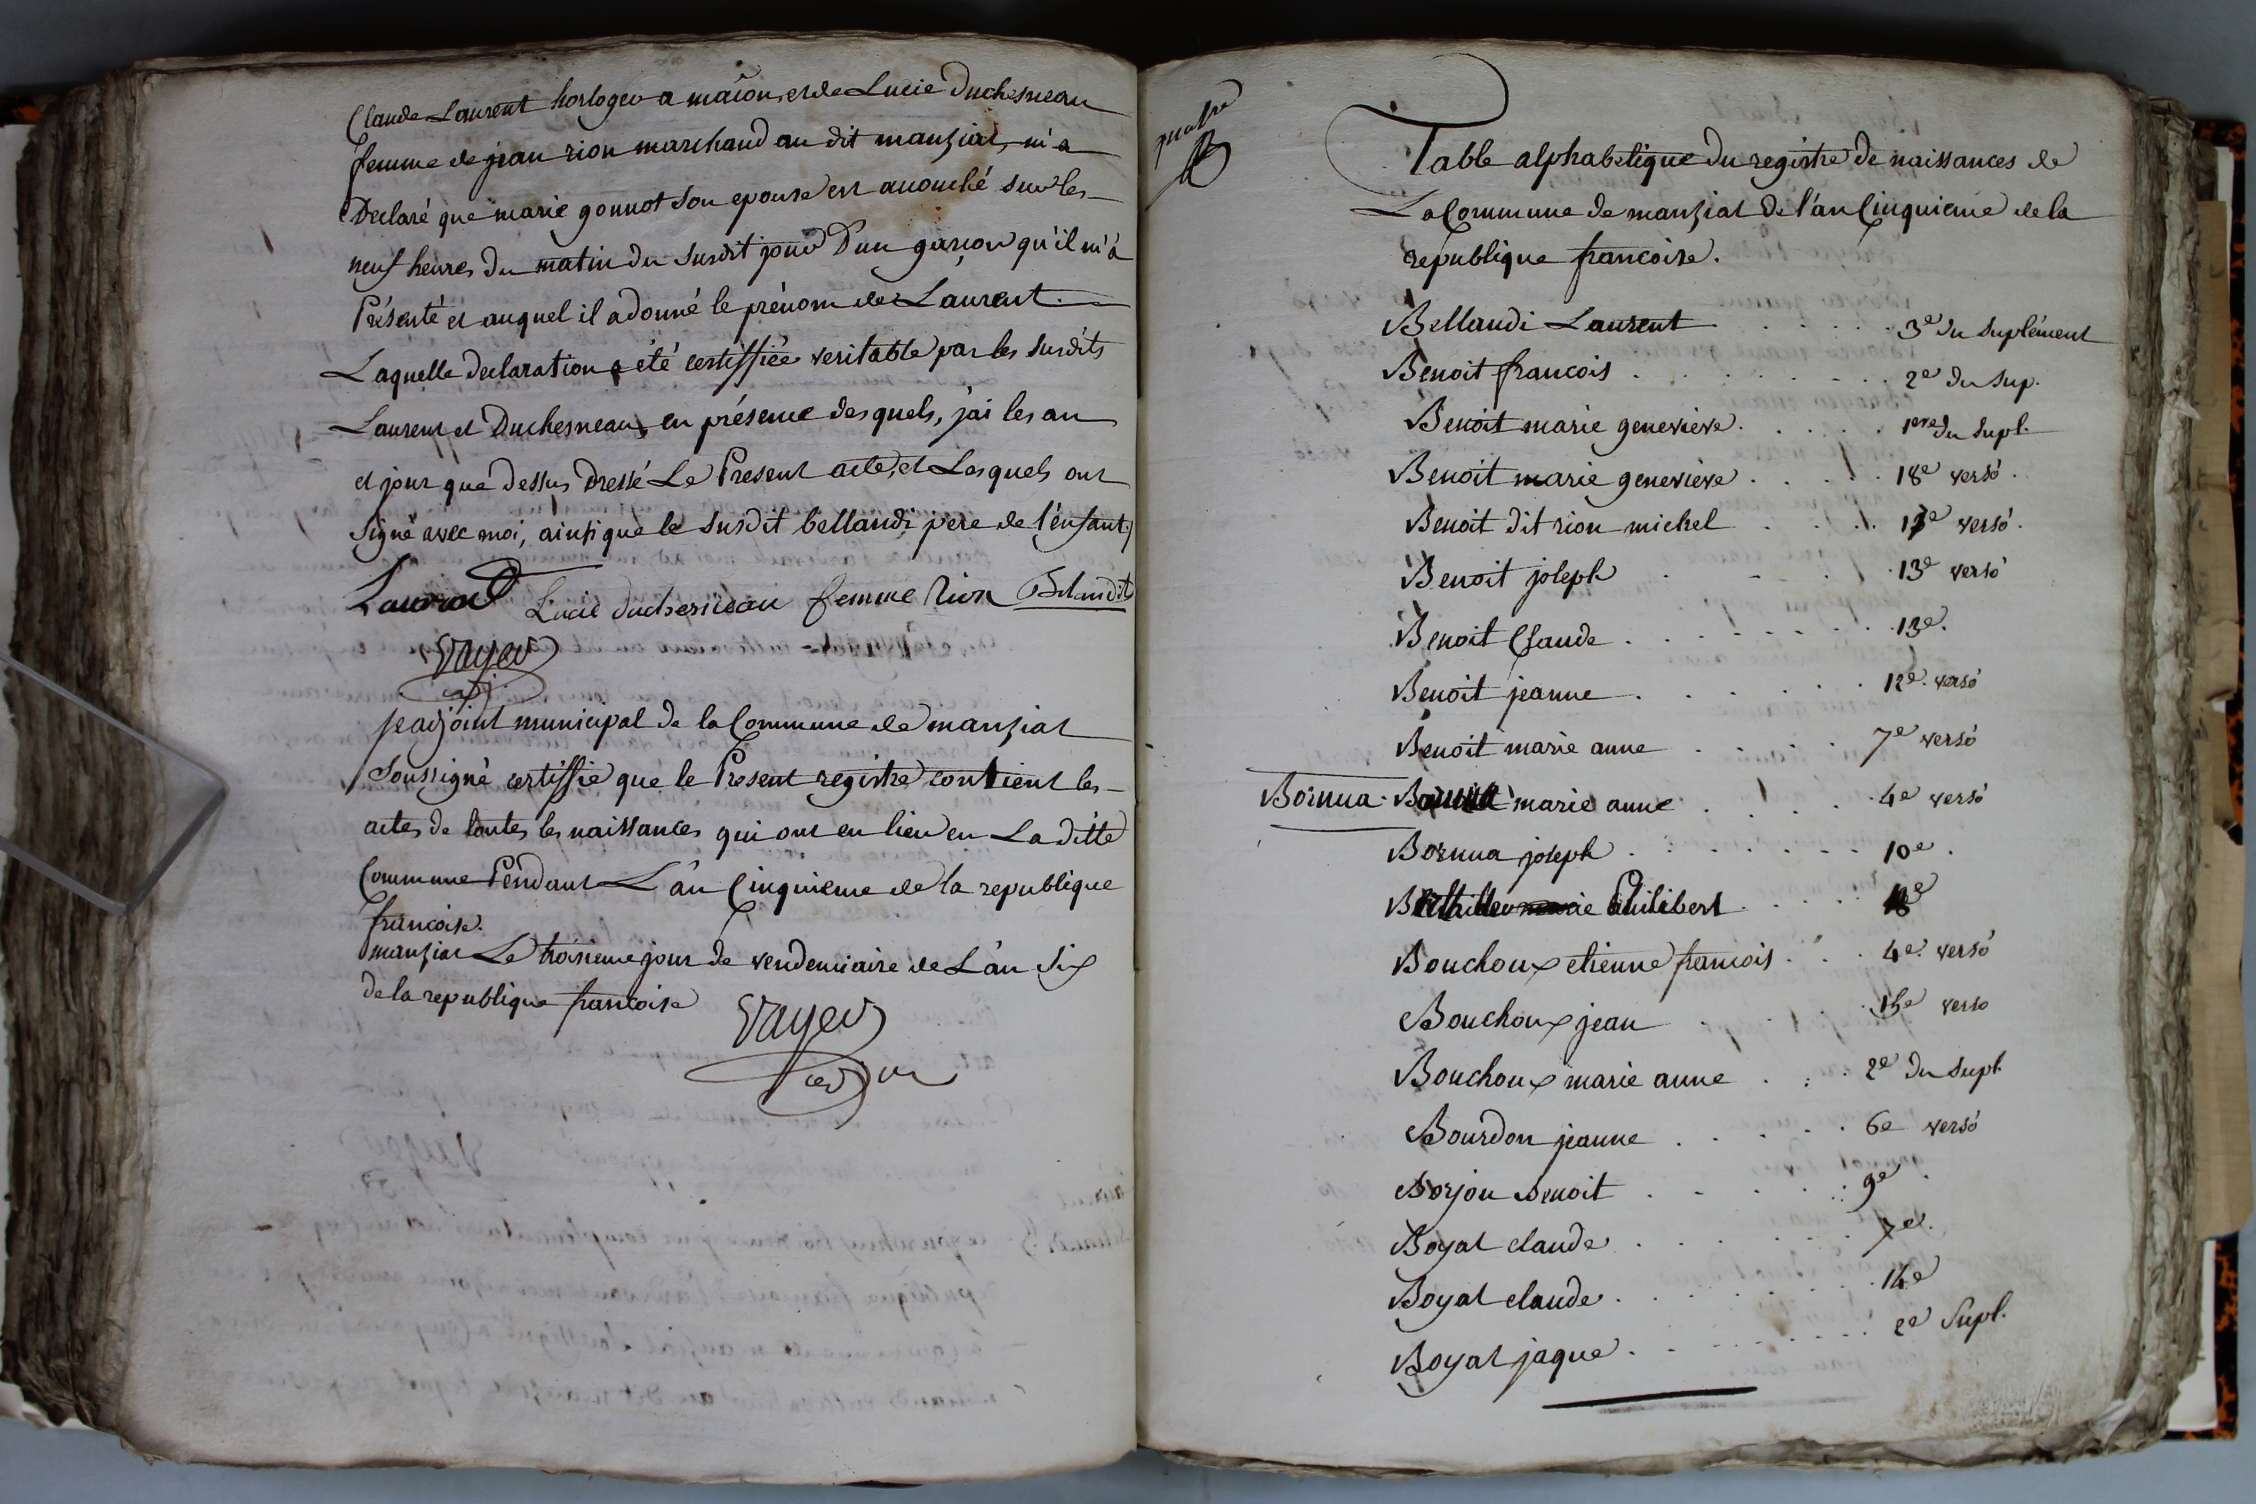 Claude Laurent horloger a macon, et de Lucie Duchesneau
femme de jean rion marchand au dit manziat, m'a
Declaré que marie gonnot son epouse est accouché sur les
neuf heures du matin du susdit jour D'un garcon qu'il m'à
Présenté et auquel il a donné le prénom de Laurent.
Laquelle declaration a été certiffiée veritable par les susdits
Laurent et Duchesneau, en présence desquels, j'ai les an
et jour que dessus dressé Le Present acte, et Lesquels ont
signé avec moi, ainsi que le susdit bellandi pere de l'enfant.
Laurent Lucie duchesneau femme Rion Belandi
Vayer
adj.
je adjoint municipal de la Commune de manziat
soussigné certiffie que le Present registre contient les
actes de toutes les naissances qui ont eu lieu en La ditte
Commune Pendant L'an Cinquieme de la republique
francoise.
manziat Le troisieme jour de vendemiaire de L'an Six
de la republique francoise Vayer
quatre
Table alphabetique du registre de naissances de
La Commune de manziat de l'an Cinquieme de la
republique francoise.
Bellandi Laurent . . . . . 3e du suplément
Benoit francois . . . . . . . 2e du sup.
Benoit marie genevieve . . . . . 1ere du supl.
Benoit marie genevieve . . . . . 18e verso .
Benoit dit rion michel . . . . verso .
Benoit joseph . . . . 13e verso
Benoit Claude . . . . . . . 13e.
Benoit jeanne . . . . . . . 12e. verso
Benoit marie anne . . . . 7e verso
Bornua . marie anne . . . . 4e verso
Bornua joseph . . . . . . . 10e .
Philibert . . . . .
Bouchoux etienne francois . . . 4e. verso
Bouchoux jean . . . . 15e verso
Bouchoux marie anne . . . 2e du supl.
Bourdon jeanne . . . . . 6e verso
Borjon Benoit . . . . . 9e .
Boyat claude . . . . . . 7e.
Boyat claude . . . . . . . 14e
Boyat jaque . . . . . . . 2e supl.